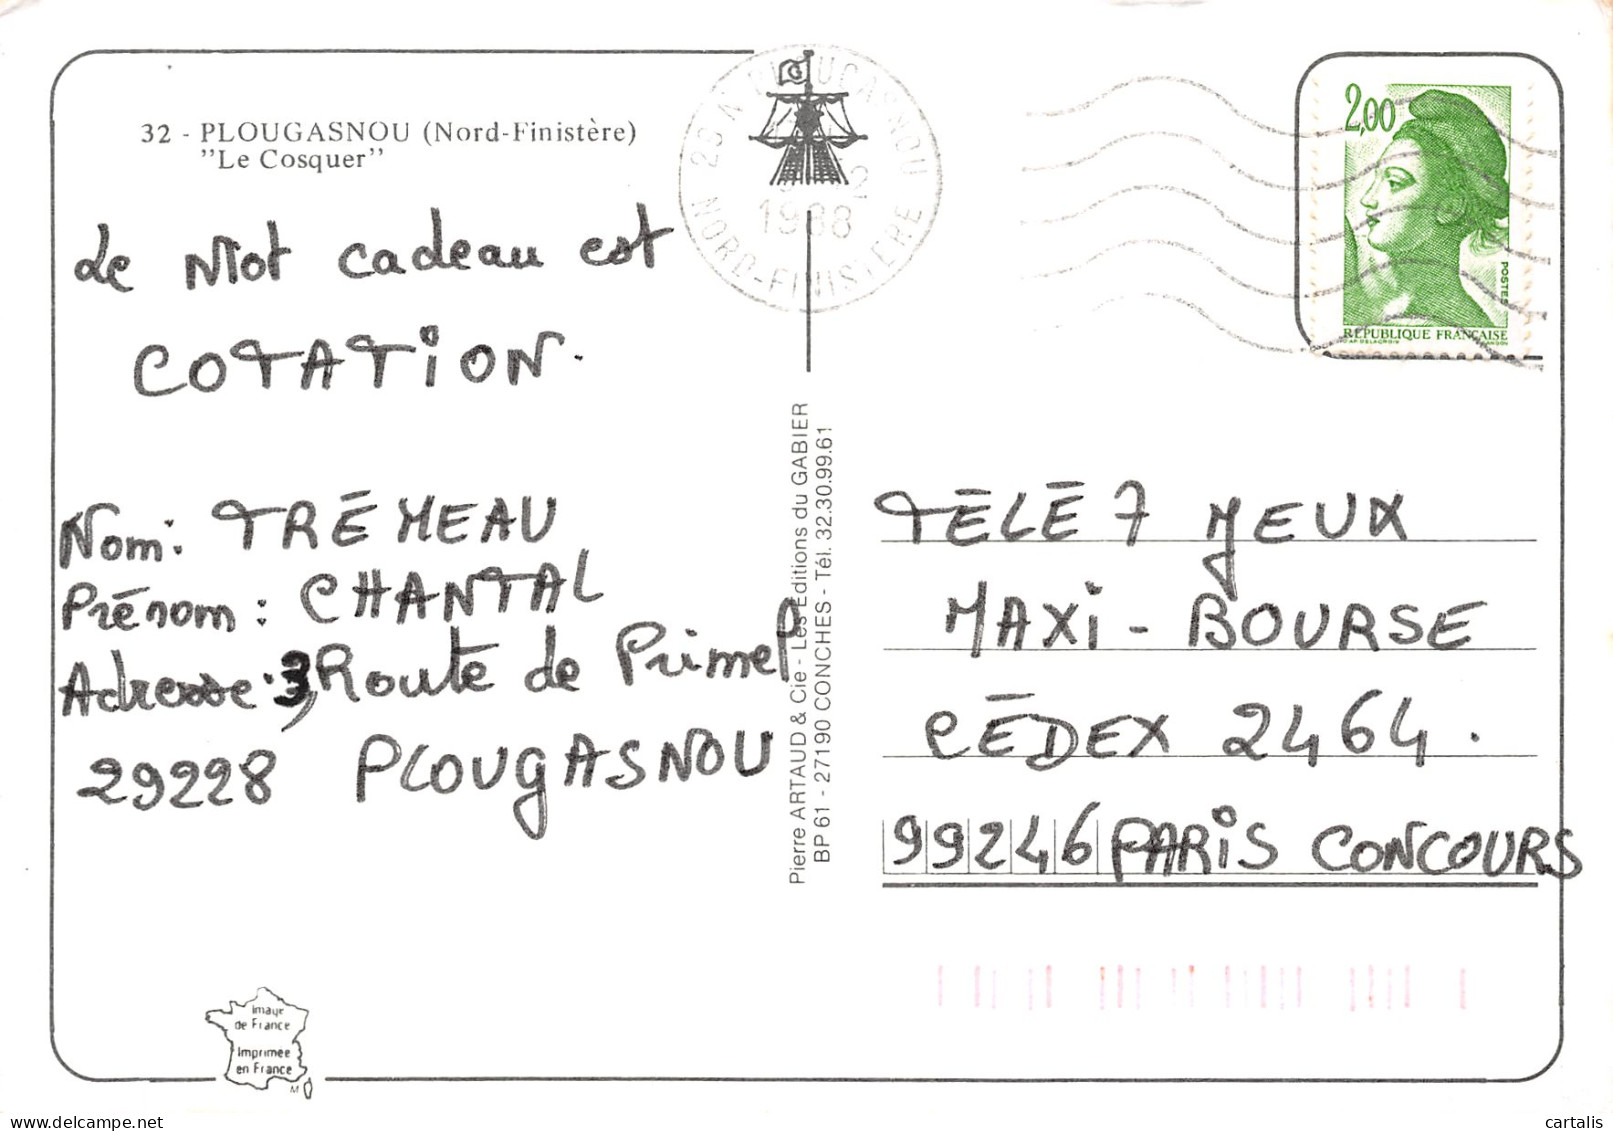 32 - PLOUGASNOU (Nord-Finistère)
"Le Cosquer"
Le Mot cadeau est
COTATION.
Nom: TRÉMEAU
Prénom: CHANTAL
Adresse: 3, Route de Primel
29228 PLOUGASNOU
Pierre ARTAUD & Cie - Les Editions du GABIER
BP 61 - 27190 CONCHES - Tél. 32.30.99.61
PLOUGASNOU
1988
NORD-FINISTERE
2,00
POSTES
RÉPUBLIQUE FRANÇAISE
D'AP DELACROIX
TÉLÉ 7 JEUX
MAXI - BOURSE
CÉDEX 2464.
99246 PARIS CONCOURS
Image
de France
Imprimée
en France
cartalis